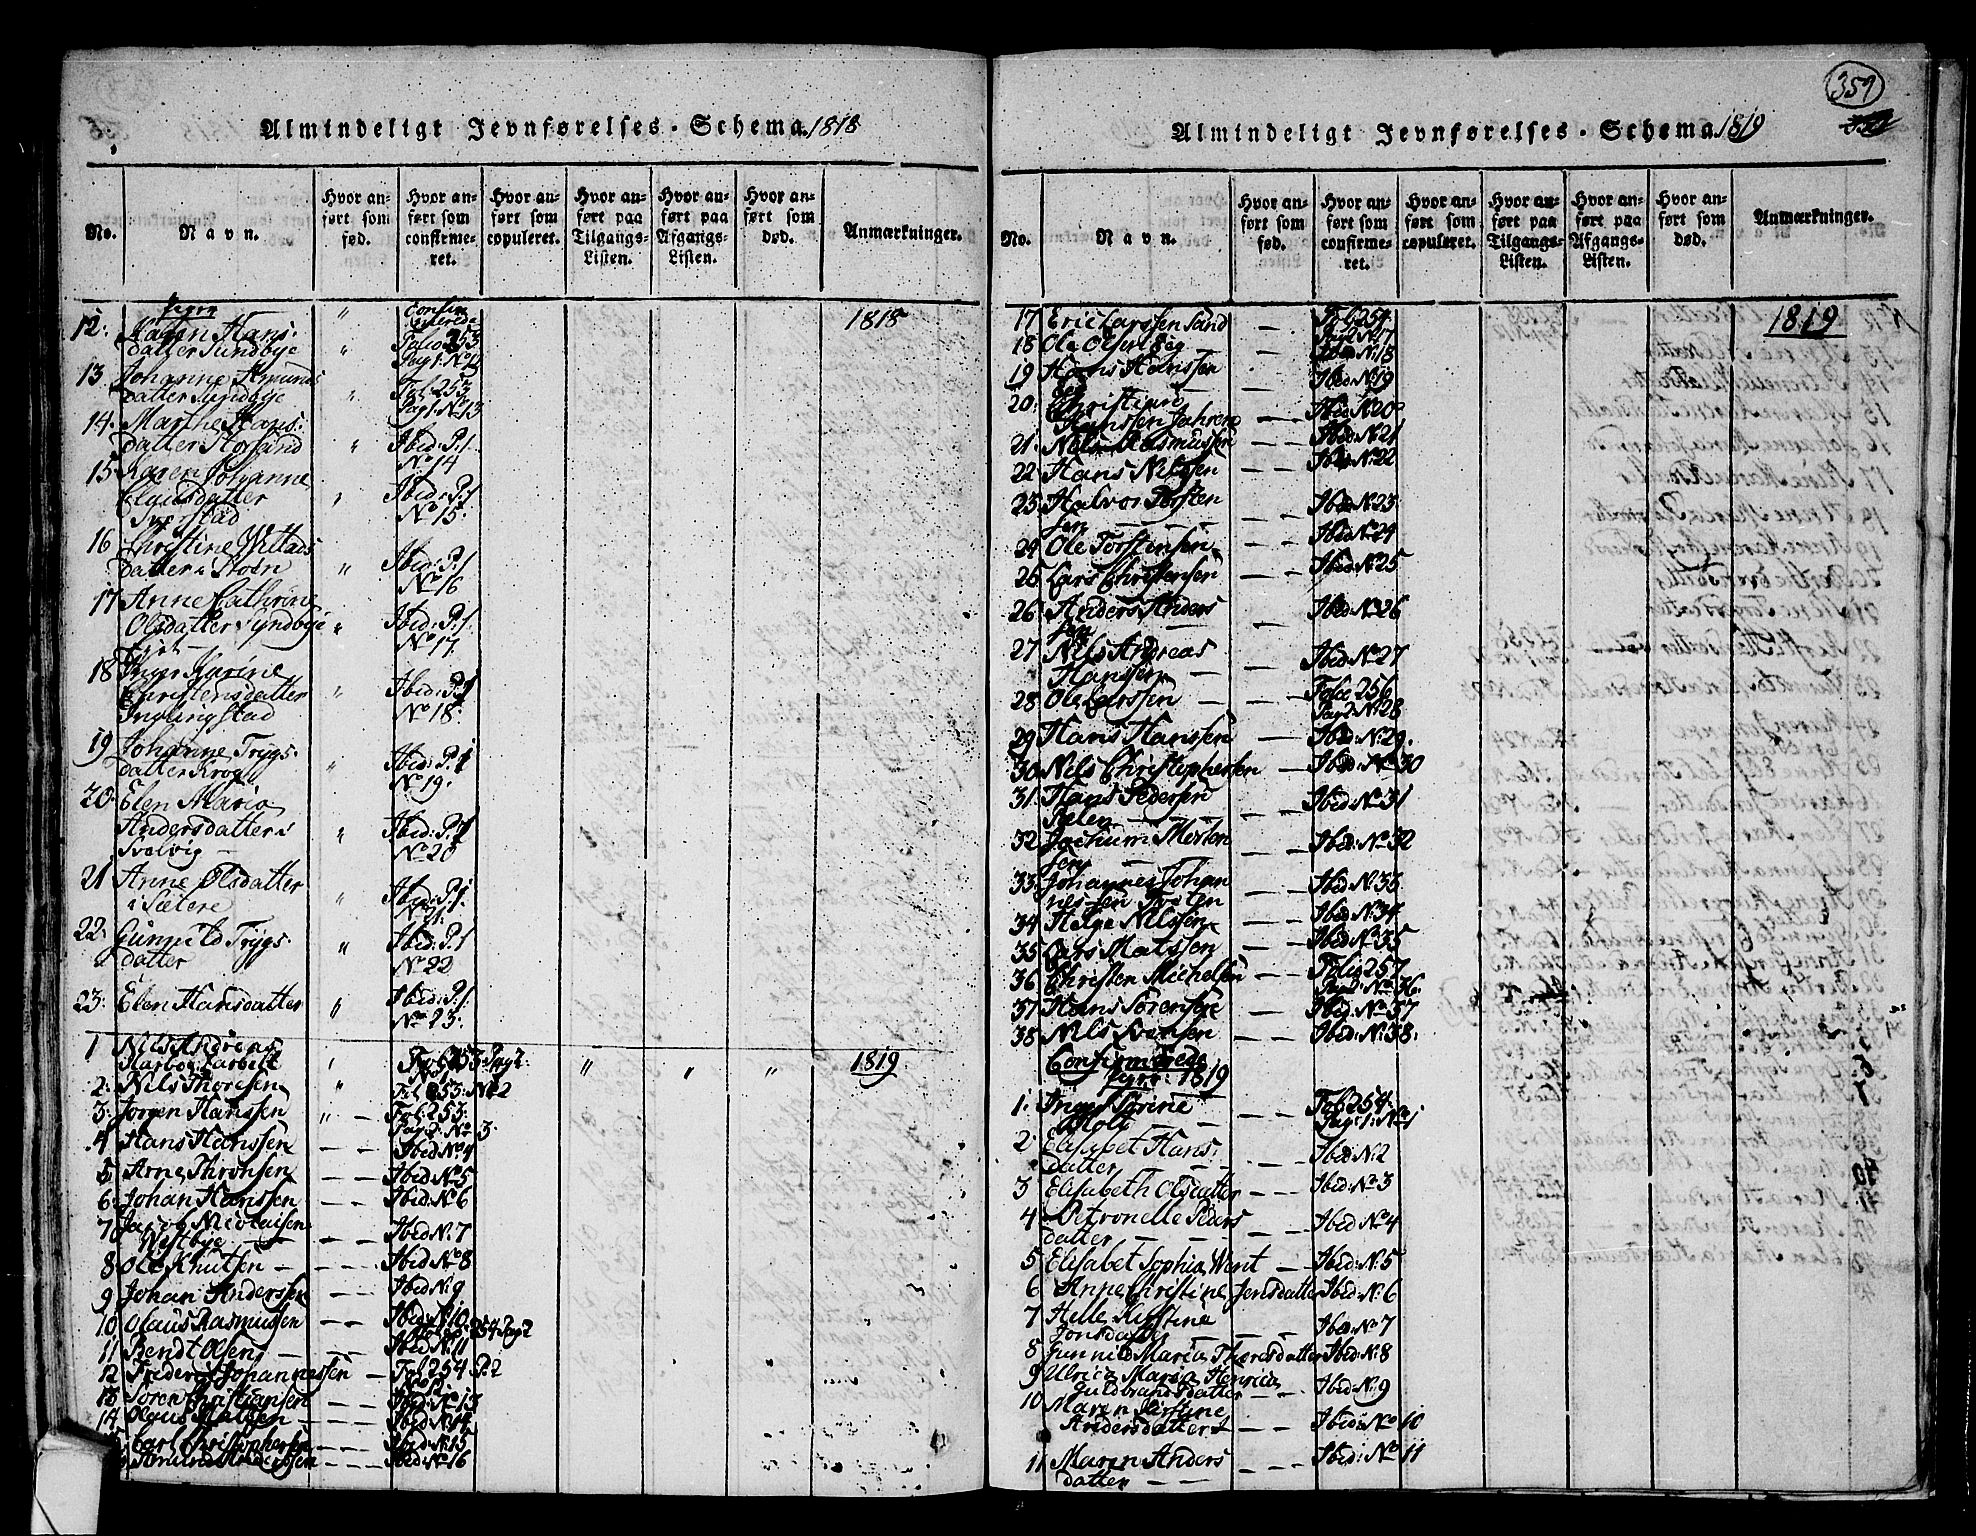 Almindeligt Jevnførelses-Schema 1818
No.
Navn.
Hvor an-
ført som
fød.
Hvor an-
ført som
confirme-
ret.
Hvor an-
ført som
copuleret.
Hvor an-
ført paa
Tilgangs-
Listen.
Hvor an-
ført paa
Afgangs-
Listen.
Hvor an-
ført som
død.
Anmærkninger.
1818
12: Karen Hans-
datter Sundbye Folio 253 Pag 1. No 12
13 Johanne Amunds
datter Sundbye Fol 253 Pag 1. No 13
14. Marthe Hans-
datter Storsand Ibid: P. 1 No 14
15 Karen Johanne
Clausdatter Ibid: P. 1 No 15.
Sverstad
16 Christine Willads
datter i Stoen Ibid: P. 1 No 16
17 Anne Cathrine
Olsdatter Sundbye Ibid: P. 1 No 17.
18 Karine
Christensdatter Ibid: P. 1 No 18.
Inglingstad
19 Johanne Trygs-
datter Krog Ibid: P. 1 No 19.
20 Elen Maria
Andersdatter i Ibid: P. 1 No 20
Svelvig
21 Anne Olsdatter
i Sætere Ibid: P. 1. No 21.
22: Gunnild Trygs-
datter Ibid: P. 1 No 22
23: Elen Hansdatter Ibid: P. 1 No 23:
1 Nils Andreas Fol 253 Pag 2 1819
2: Nils Thoresen Fol 253: No 2
3: Jørgen Hanssen Fol 253: Pag 2: No 3:
4 Hans Hanssen Ibid No 4
5 Arne Thronsen Ibid No 5
6: Johan Hanssen Ibid No 6
7 Jacob Nicolaisen
Westbye Ibid No 7
8 Ole Knutsen Ibid No 8
9 Johan Anderssen Ibid No 9
10 Olaus Rasmussen Ibid: No 10
11 Bendt Olsen Ibid No 11
12 Frederic Johannessen Fol 254 P. 2
13 Søren Christiansen Ibid: No 13
14 Olaus Ibid No 14
Carl Christophersen Ibid: No 15
Amund Ibid: No 16
359
Almindeligt Jevnførelses-Schema 1819
No.
Navn.
Hvor an-
ført som
fød.
Hvor an-
ført som
confirme-
ret.
Hvor an-
ført som
copuleret.
Hvor an-
ført paa
Tilgangs-
Listen.
Hvor an-
ført paa
Afgangs-
Listen.
Hvor an-
ført som
død.
Anmærkninger.
1819
17 Eric Larssen Sand Fol 254. Pag 2 No 17
18 Ole Ibid No 18
19 Hans Hanssen Ibid No 19
20: Christian
Hanssen Jahren Ibid No 20
21. Nils Rasmussen Ibid No 21
22 Hans Nilssen Ibid No 22
23 Halvor Torsten
sen Ibid No 23
24 Ole Torstensen Ibid No 24
25 Lars Christensen Ibid No 25
26 Anders Anders
sen Ibid No 26
27 Nils Andreas
Hanssen Ibid No 27
28 Ole Larssen Folio 256 Pag 2 No 28
29 Hans Hanssen Ibid No 29.
30 Nils Christophersen Ibid: No 30
31. Hans Pedersen Ibid No 31
32 Jochum Morten
sen Ibid: No 32
33: Johannes Johan
nessen Ibid No 33
34 Helge Nilssen Ibid No 34
35 Lars Matssen Ibid No 35
36 Christen Michelsen Folio 257 Pag 2: No 36.
37 Hans Sørensen Ibid: No 37
38 Nils Evensen Ibid: No 38.
Confirmerede
1819
1. Inger Sørine
Moll Fol 254. Pag: 1: No 1
2 Elisabet Hans-
datter Ibid No 2
3 Elisabeth Olsdatter Ibid: No 3
4 Petronelle Peders
datter Ibid No 4
5 Elisabet Sophia Went Ibid: No 5
6 Anne Christine Jensdatter Ibid: No 6
7 Helle Kirstine
Jonsdatter Ibid: No 7
8 Gunnild Maria Thoresdatter Ibid: No 8
9 Ulrica Maria Henrica
Guldbrandsdatter Ibid: No 9
10 Maren Kirstine
Andersdatter Ibid: No 10
11 Maren Anders
datter Ibid: No 11